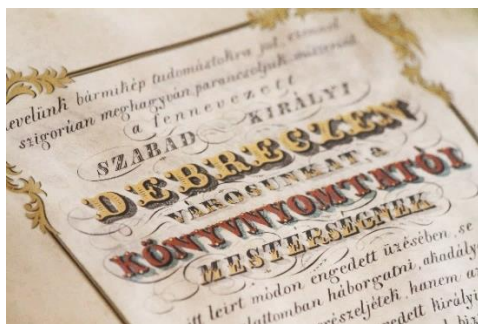 levelünk bármikép tudomástokra jut, ezennel
szigorúan meghagyván parancsoljuk, miszerint
a fennevezett
SZABAD KIRÁLYI
DEBRECZEN
VÁROSUNKAT, A
KÖNYVNYOMTATÓI
MESTERSÉGNEK
itt leirt módon engedett üzésében, se
háborgatni, akadály
hanem az
edett királyi